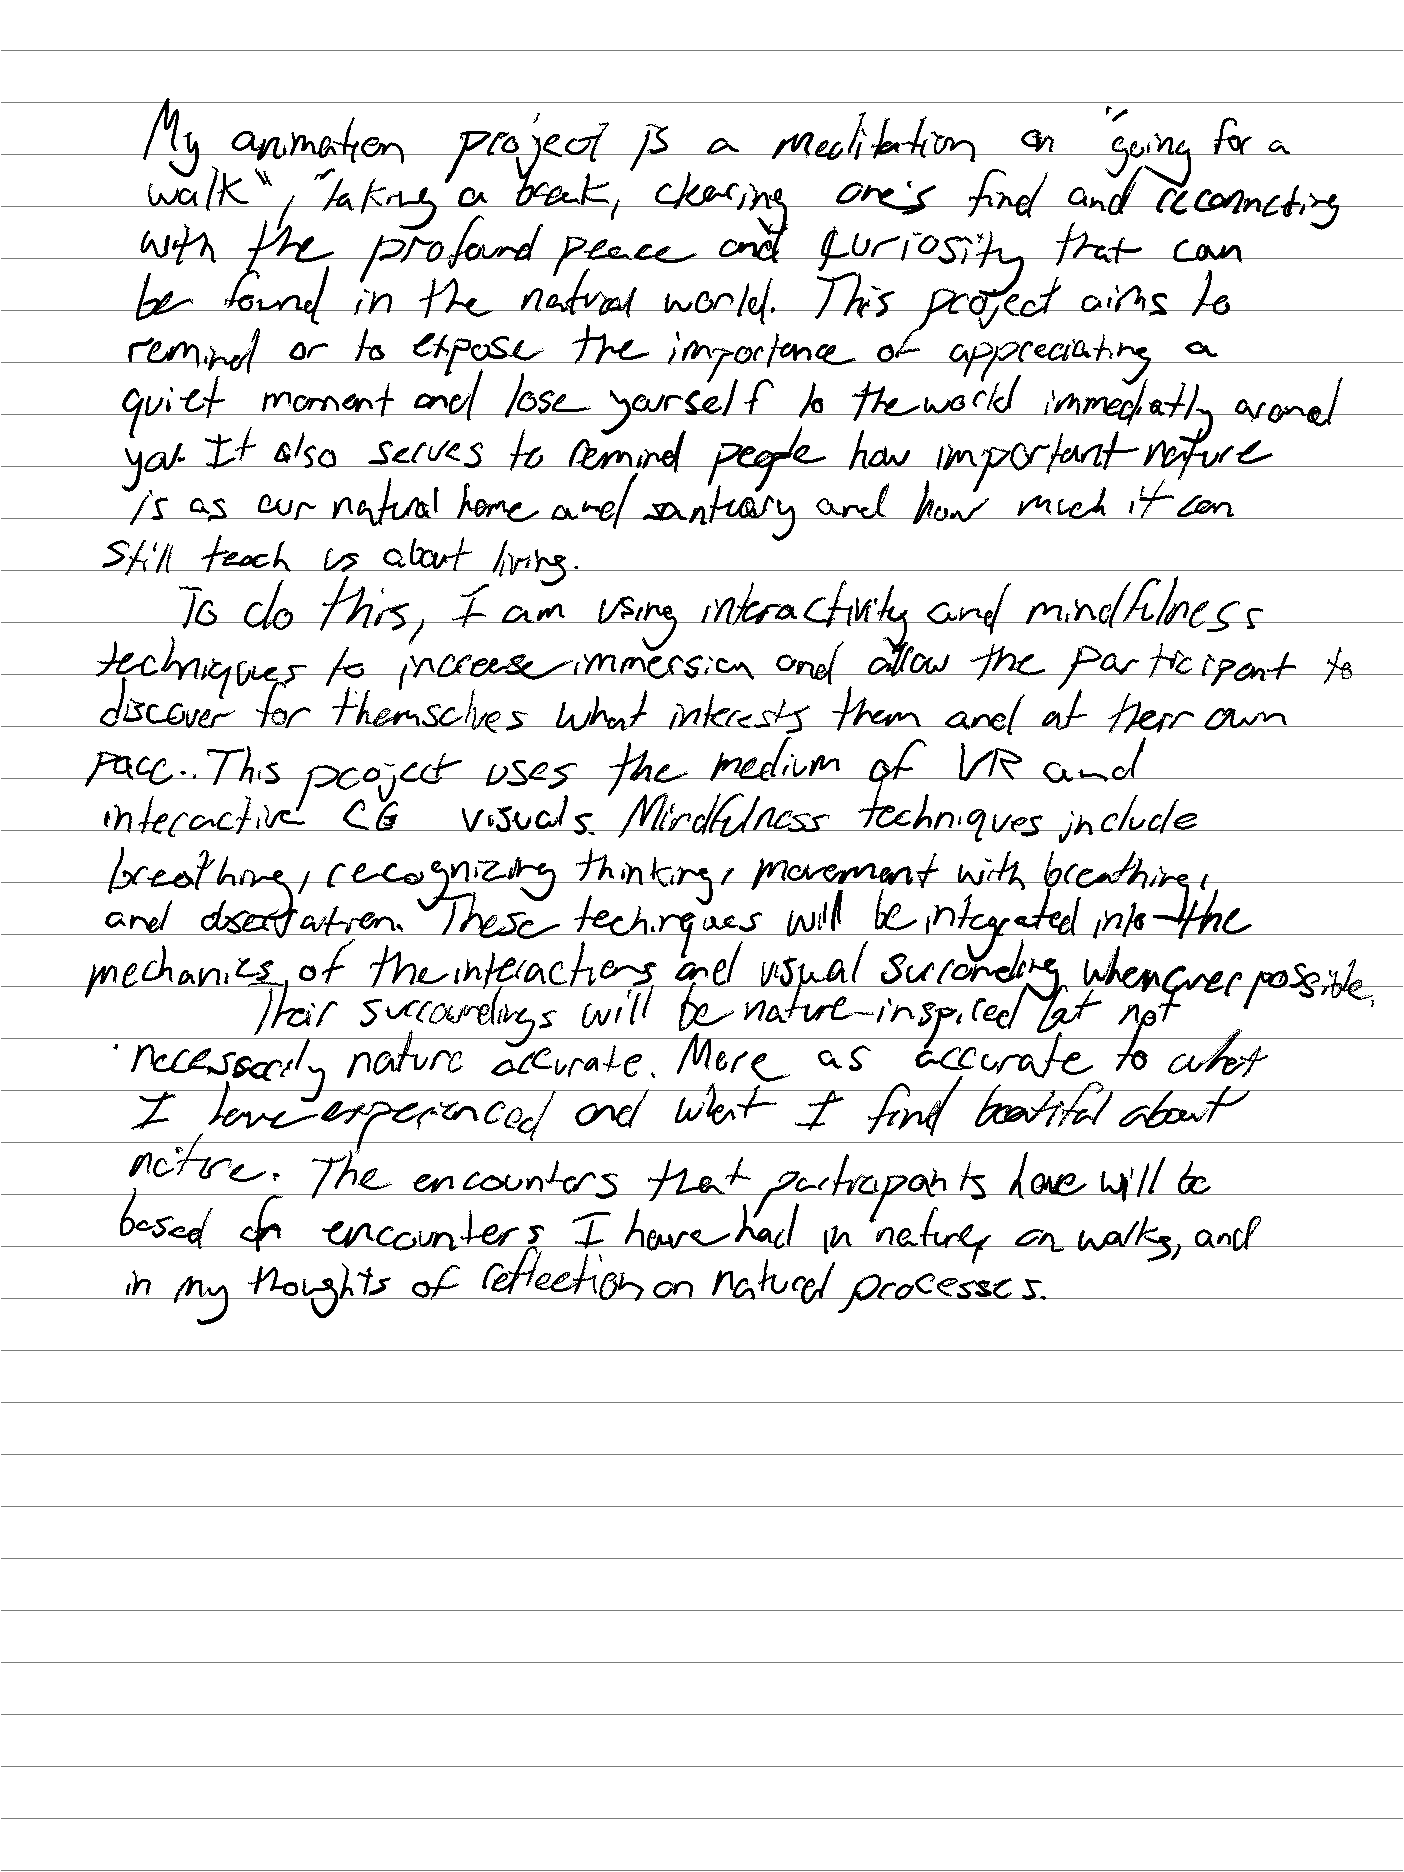 My animation project is a meditation on "going for a
walk", "taking a break, clearing one's find and reconnecting
with the profound peace and curiosity that can
be found in the natural world. This project aims to
remind or to expose the importance of appreciating a
quiet moment and lose yourself to the world immediatly around
you. It also serves to remind people how important nature
is as our natural home and santuary and how much it can
still teach us about living.
To do this, I am using interactivity and mindfulness
techniques to increase immersion and allow the participant to
discover for themselves what interests them and at their own
pace. This project uses the medium of VR and
interactive CG visuals. Mindfulness techniques include
breathing, recognizing thinking, movement with breathing,
and These techniques will be integrated into the
mechanics of the interactions and visual surrounding whenever possible.
Their surroundings will be nature-inspired but not
necessarily nature accurate. More as accurate to what
I have experienced and what I find beatiful about
nature. The encounters that participants have will be
based on encounters I have had in nature, on walks, and
in my thoughts of reflection on natural processes.